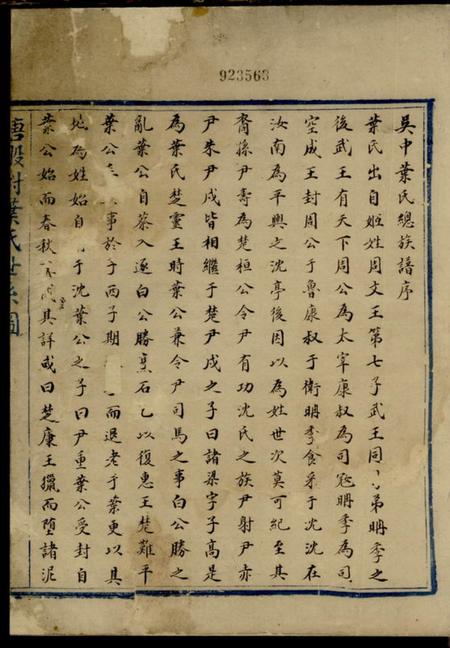 923563
吳中葉氏總族譜序
葉氏出自姬姓周文王第七子武王同弟聃季之
後武王有天下周公為太宰康叔為司寇聃季為司
空成王封周公于魯康叔于衛聃季食采于沈沈在
汝南為平輿之沈亭後因以為姓世次莫可紀至其
裔孫尹壽為楚桓公令尹有功沈氏之族尹射尹亦
尹朱尹戌皆相繼于楚尹戌之子曰諸梁字子高是
為葉氏楚靈王時葉公兼令尹司馬之事白公勝之
亂葉公自蔡入逐白公勝烹石乙以復惠王楚難平
葉公事於子西子期而退老于葉更以其
地為姓始自于沈葉公之子曰尹重葉公受封自
葉公始而春秋其詳或曰楚康王獵而墮諸泥
唐葉氏世系圖